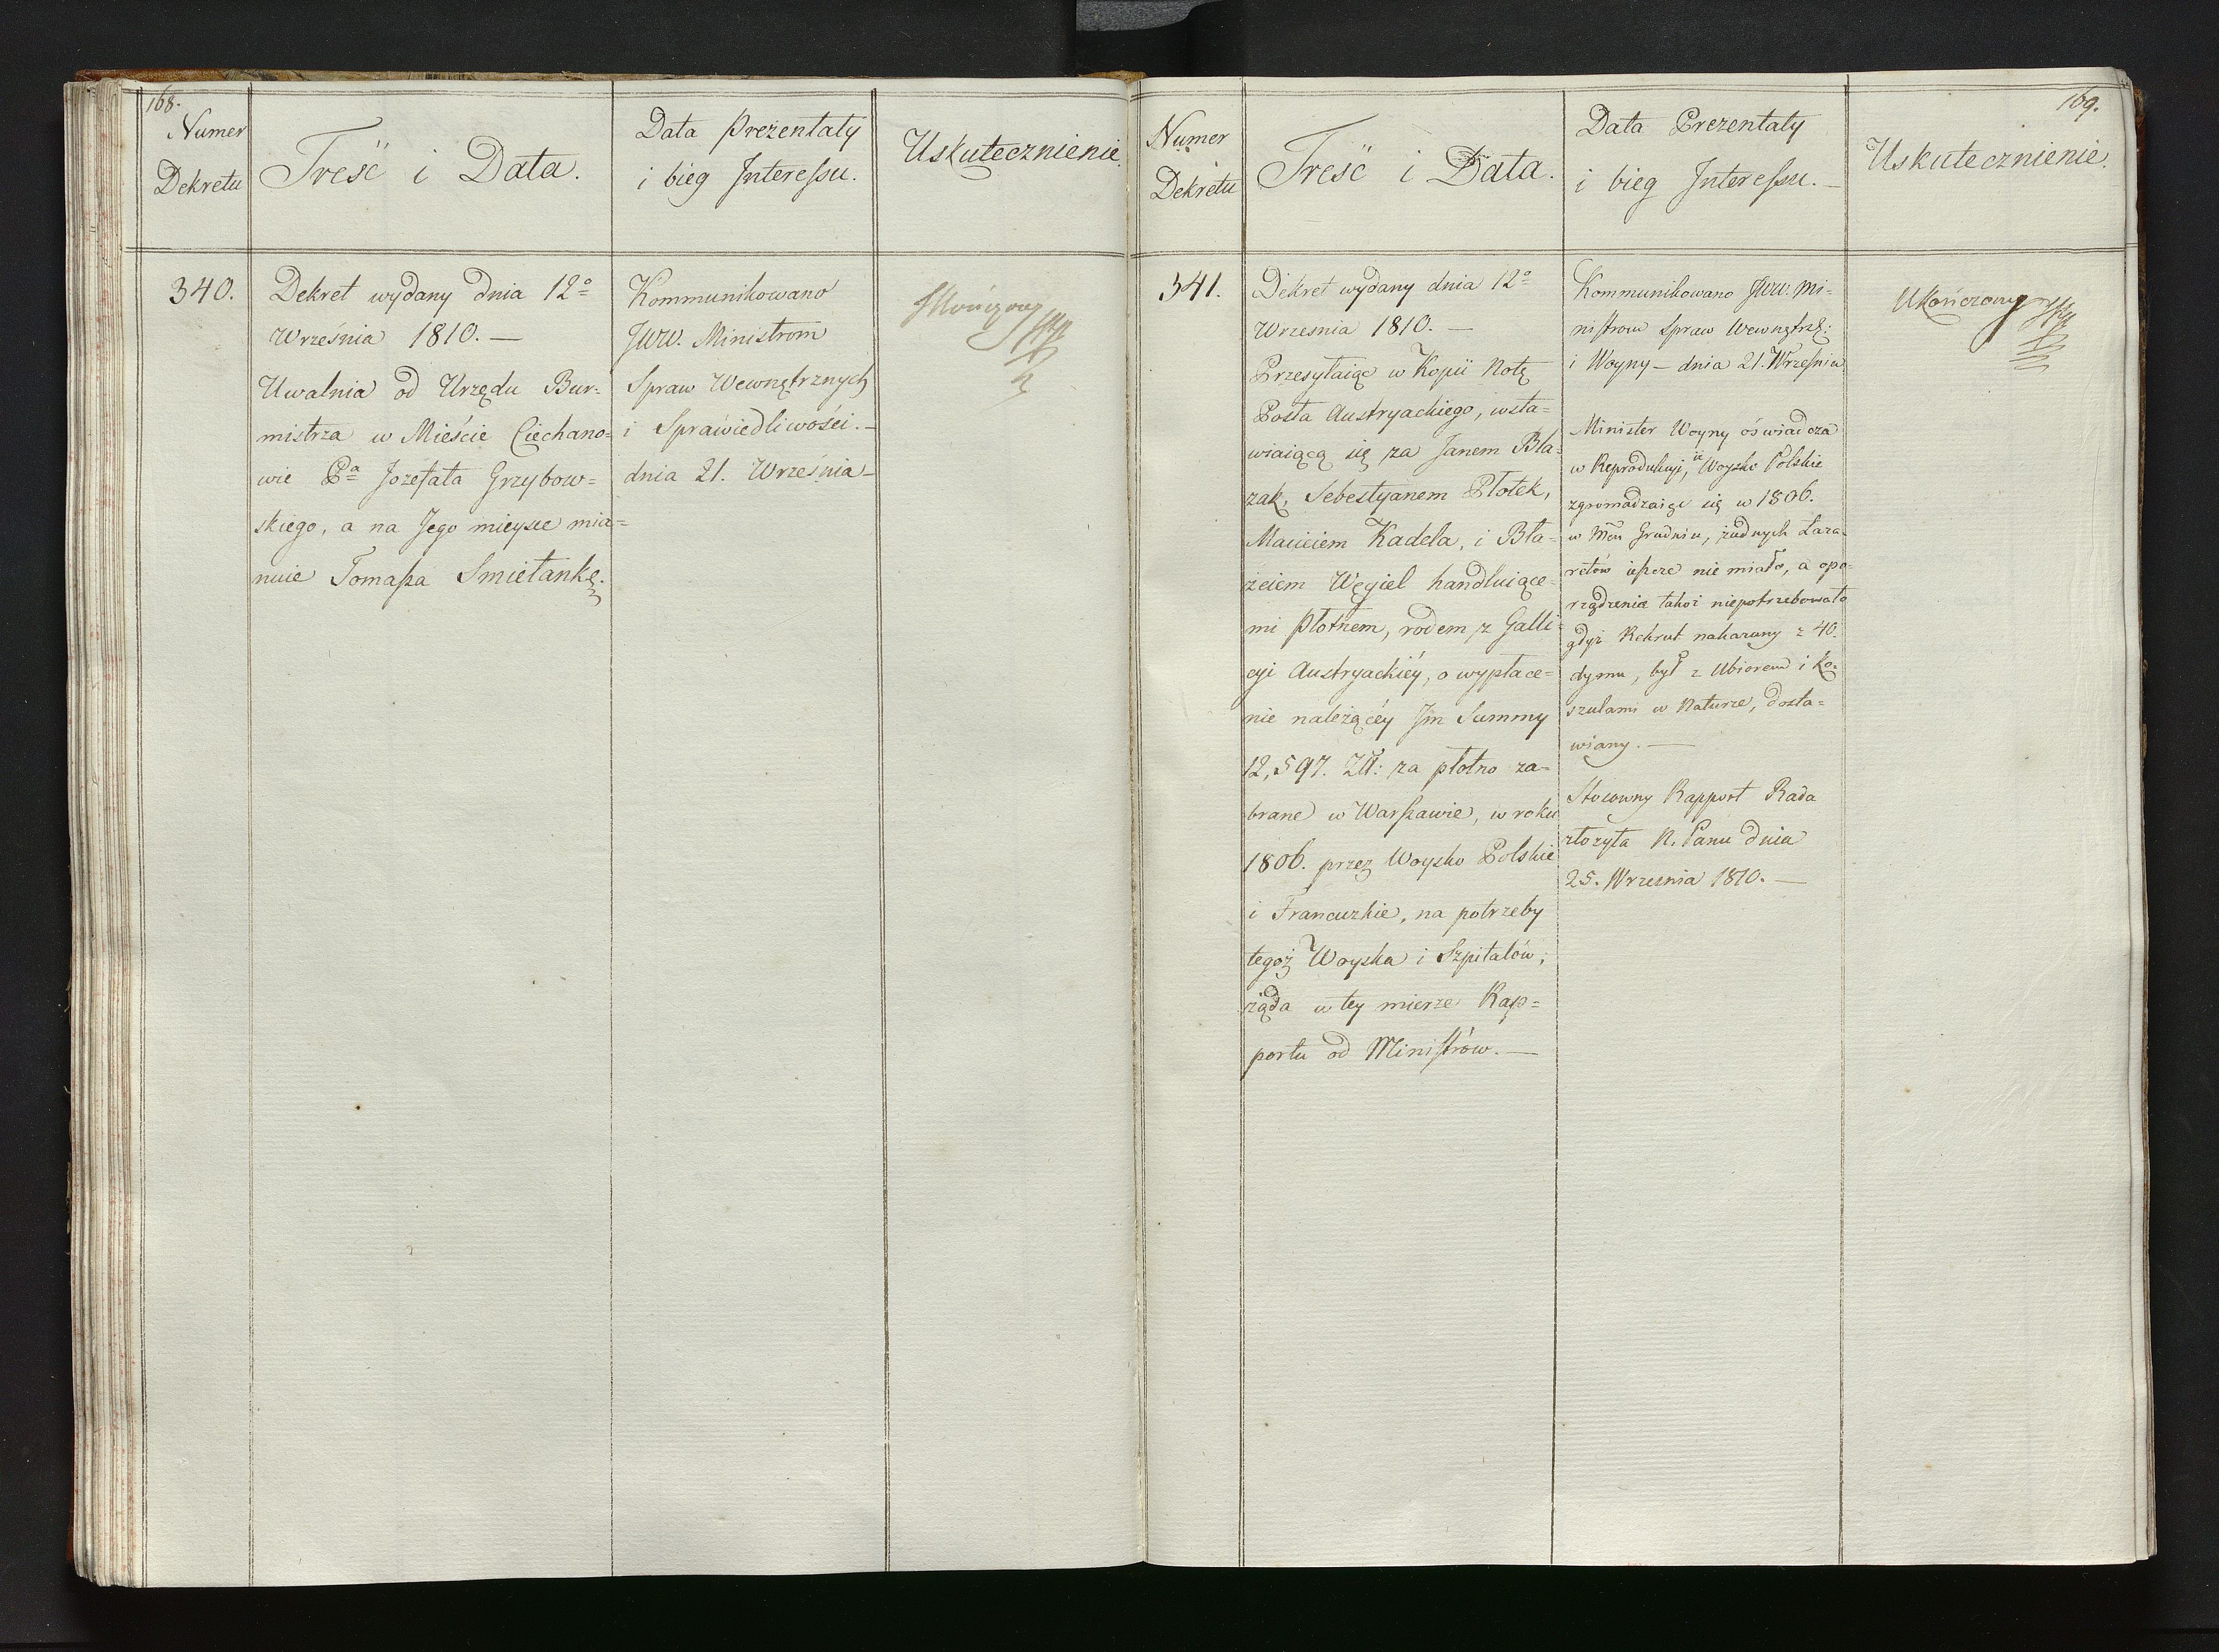 168.
Numer
Dekretu
Treść i Data.
Data Prezentaty
i bieg Interessu.
Uskutecznienie.
340.
Dekret wydany dnia 12º
Września 1810. —
Uwalnia od Urzędu Bur=
mistrza w Mieście Ciechano=
wie Pª Jozefata Grzybow=
skiego, a na Jego mieysce mia=
nuie Tomasza Smietankę.
Kommunikowano
JWW. Ministrom
Spraw Wewnętrznych
i Sprawiedliwości. —
dnia 21. Września —
169.
Numer
Dekretu
Treść i Data.
Data Prezentaty
i bieg Interessu. —
Uskutecznienie.
341.
Dekret wydany dnia 12º
Wrzesnia 1810. —
Przesyłaiąc w Kopii Notę
Posła Austryackiego, wsta=
wiaiącą się za Janem Bła=
zak, Sebestyanem Płotek,
Macieiem Kadela, i Bła=
żeiem Węgiel handluiące=
mi Płotnem, rodem z Galli=
cyi Austryackiéy, o wypłace=
nie należącéy Jm Summy
12,597. Złł: za płotno za=
brane w Warszawie, w roku
1806. przez Woysko Polskie
i Francuzkie, na potrzeby
tegoż Woyska i Szpitalów,
żąda w tey mierze Rap=
portu od Ministrów. —
Kommunikowano JWW. Mi=
nistrom Spraw Wewnętrz:
i Woyny — dnia 21. Września
Minister Woyny oświadcza
w Reprodukcyi, iż Woysko Polskie
zgromadzaiąc się w 1806.
w Mcu Grudniu, żadnych Laza=
retów ieszcze nie miało, a opo=
rządzenia takoż niepotrzebowało
gdyż Rekrut nakazany z 40.
dymu, był z Ubiorem i Ko=
szulami w Naturze, dosta=
wiany. —
Stosowny Rapport Rada
złożyła N. Panu dnia
25. Września 1810. —
Ukończony